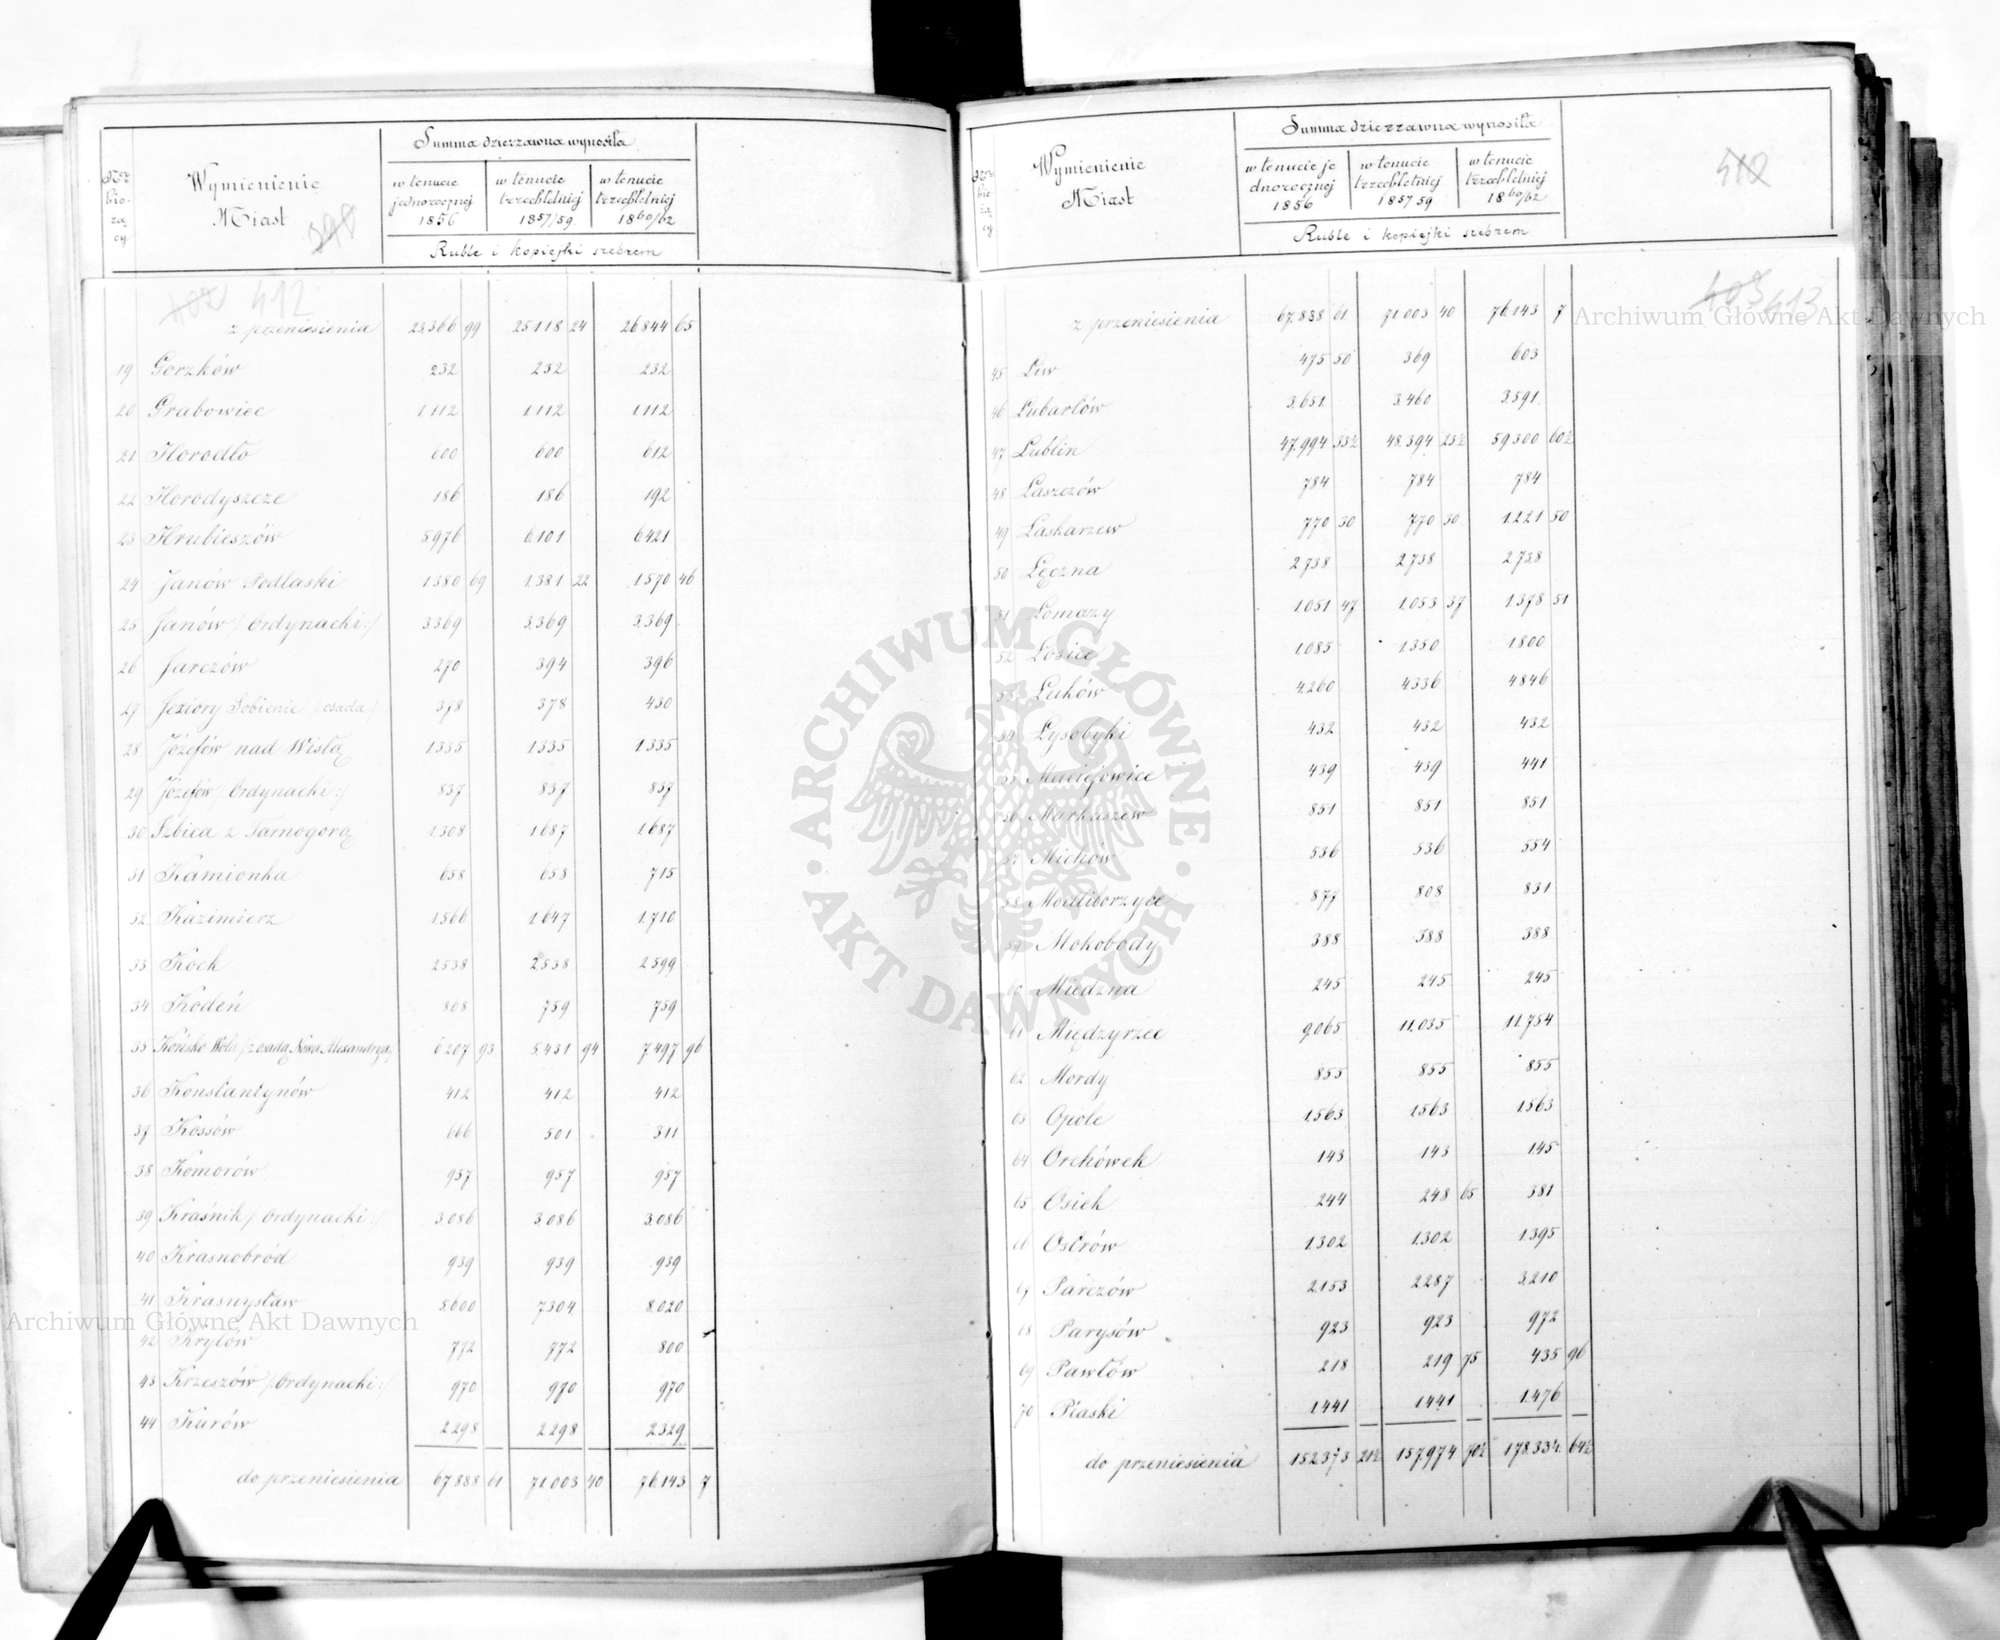 Summa dzierzawna wynosiła
Wymienienie
Miast
w tenucie jednorocznej 1856
w tenucie trzechletniej 1857/59.
w tenucie trzechletniej 1860/62
Ruble i kopiejki srebrem
412
z przeniesienia 23.366 99 25.118 24 26.844 65
19 Gorzków 232 232 232
20 Grabowiec 1.112 1.112 1.112
21 Horodło 600 600 612
22 Horodyszcze 186 186 192
23 Hrubieszów 5976 6.101 6.421
24 Janów Podlaski 1.380 69 1.381 22 1.570 46
25 Janów /:Ordynacki:/ 3.369 3.369 3.369
26 Jarczów 270 394 396
27 Jeziory Sobienie /osada/ 378 378 430
28 Józefów nad Wisłą 1.335 1.335 1.335
29 Józefów /:Ordynacki:/ 857 857 857
30 Izbica z Tarnogorą 1.308 1.687 1.687
31 Kamionka 658 658 715
32 Kazimierz 1.566 1.647 1.710
33 Kock 2538 2538 2.599
34 Kodeń 868 759 759
35 Końsko Wola /z osadą Nowa Alexandrya/ 6207 93 5.431 94 7.497 96
36 Konstantynów 412 412 412
37 Kossów 666 301 311
38 Komorów 957 957 957
39 Kraśnik /:Ordynacki:/ 3.086 3.086 3.086
40 Krasnobród 939 939 939
41 Krasnystaw 5.600 7.304 8.020
42 Kryłów 772 772 800
43 Krzeszów /:Ordynacki:/ 970 970 970
44 Kurów 2.298 2.298 2.329
do przeniesienia 67.838 61 71.003 40 76.143 7
Summa dzierzawna wynosiła
Wymienienie
Miast
w tenucie jednorocznej 1856
w tenucie trzechletniej 1857 59
w tenucie trzechletniej 1860/62
Ruble i kopiejki srebrem
413
z przeniesienia 67.838 61 71.003 40 76.143 7
45 Liw 475 50 369 603
46 Lubartów 3.651 3.460 3.591
47 Lublin 47.994 33½ 48.394 23½ 59.300 60½
48 Łaszczów 784 784 784
49 Łaskarzew 770 30 770 30 1.221 50
50 Łęczna 2.738 2.738 2.738
51 Łomazy 1.051 47 1.053 37 1.378 51
52 Łosice 1.085 1.350 1800
53 Łuków 4.260 4336 4846
54 Łysobyki 432 432 432
55 Maciejowice 439 439 441
56 Markuszew 851 851 851
57 Michów 536 536 554
58 Modliborzyce 877 808 831
59 Mokobody 388 388 388
60 Miedzna 245 245 245
61 Międzyrzec 9.065 11.035 11.754
62 Mordy 855 855 855
63 Opole 1.563 1.563 1.563
64 Orchówek 143 143 145
65 Osiek 244 248 65 381
66 Ostrów 1.302 1.302 1.395
67 Parczów 2.153 2.287 3.210
68 Parysów 923 923 972
69 Pawłów 218 219 75 435 96
70 Piaski 1.441 1.441 1.476
do przeniesienia 152.373 21½ 157.974 70½ 178.334 64½
Archiwum Główne Akt Dawnych
ARCHIWUM GŁÓWNE · AKT DAWNYCH ·
Archiwum Główne Akt Dawnych